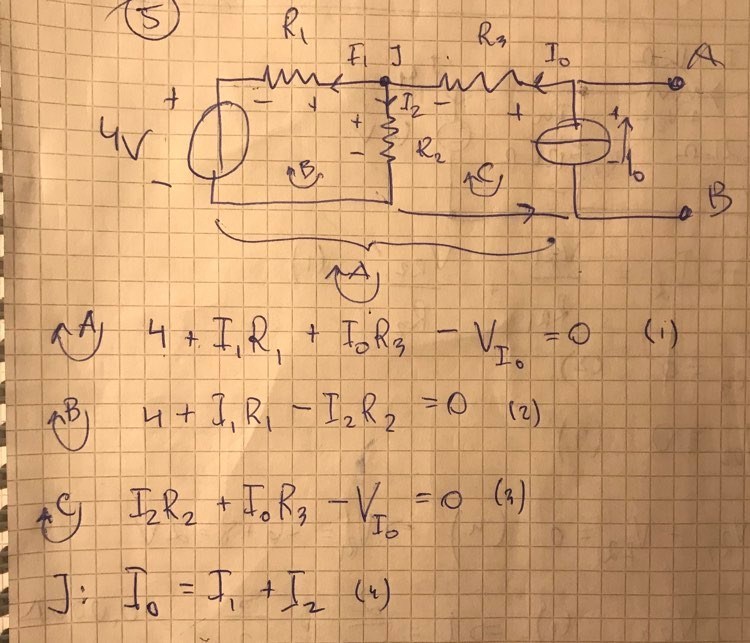 5
R₁ I₁ J R₃ I₀ A
+ - + I₂ - + +
4V + R₂ - I₀
- B - C B
A
A 4 + I₁R₁ + I₀R₃ - V_I₀ = 0 (1)
B 4 + I₁R₁ - I₂R₂ = 0 (2)
C I₂R₂ + I₀R₃ - V_I₀ = 0 (3)
J: I₀ = I₁ + I₂ (4)